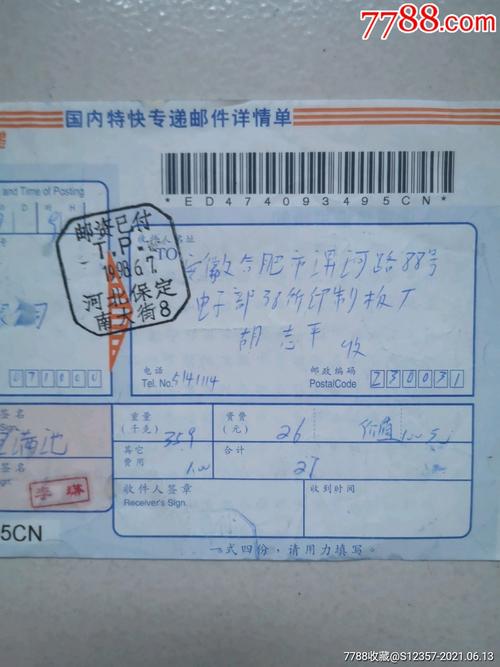 7788.com
国内特快专递邮件详情单
and Time of Posting
*ED474093495CN*
邮资已付
T.P.
1998.6.7.
河北保定
南大街8
收件人名址
TO
安徽合肥市淠河路88号
电子部38所印制板厂
胡志平 收
电话
Tel. No. 5141114
邮政编码
PostalCode 230031
071000
签名
Sign.
李瑛
5CN
重量
(千克) 359
资费
(元) 26
价值100元
其它
费用 1.00
合计
27
收件人签章
Receiver's Sign.
收到时间
一式四份，请用力填写。
7788收藏@S12357-2021.06.13